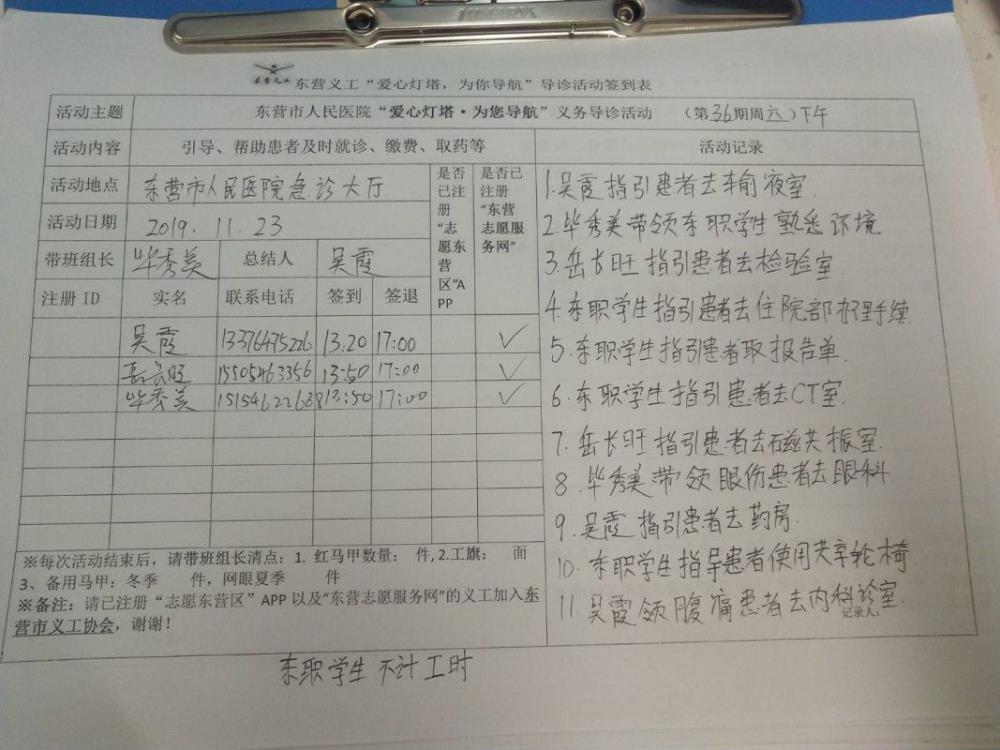 东营义工“爱心灯塔，为你导航”导诊活动签到表
活动主题 东营市人民医院“爱心灯塔·为您导航”义务导诊活动 （第36期周六）下午
活动内容 引导、帮助患者及时就诊、缴费、取药等
是否已注册“志愿东营区”APP
是否已注册“东营志愿服务网”
活动记录
活动地点 东营市人民医院急诊大厅
活动日期 2019.11.23
带班组长 毕秀美 总结人 吴霞
注册 ID 实名 联系电话 签到 签退
吴霞 13376475226 13:20 17:00 ✓
岳长旺 15505463356 13:50 17:00 ✓
毕秀美 13:50 17:00 ✓
1.吴霞指引患者去输液室.
2.毕秀美带领东职学生熟悉环境
3.岳长旺指引患者去检验室.
4.东职学生指引患者去住院部办理手续
5.东职学生指引患者取报告单.
6.东职学生指引患者去CT室.
7.岳长旺指引患者去磁共振室.
8.毕秀美带领眼伤患者去眼科.
9.吴霞指引患者去药房.
10.东职学生指导患者使用共享轮椅
11.吴霞领腹痛患者去内科诊室.
记录人：
※每次活动结束后，请带班组长清点：1. 红马甲数量： 件,2.工旗： 面
3、备用马甲：冬季 件，网眼夏季 件
※备注：请已注册“志愿东营区”APP 以及“东营志愿服务网”的义工加入东
营市义工协会，谢谢！
东职学生 不计工时